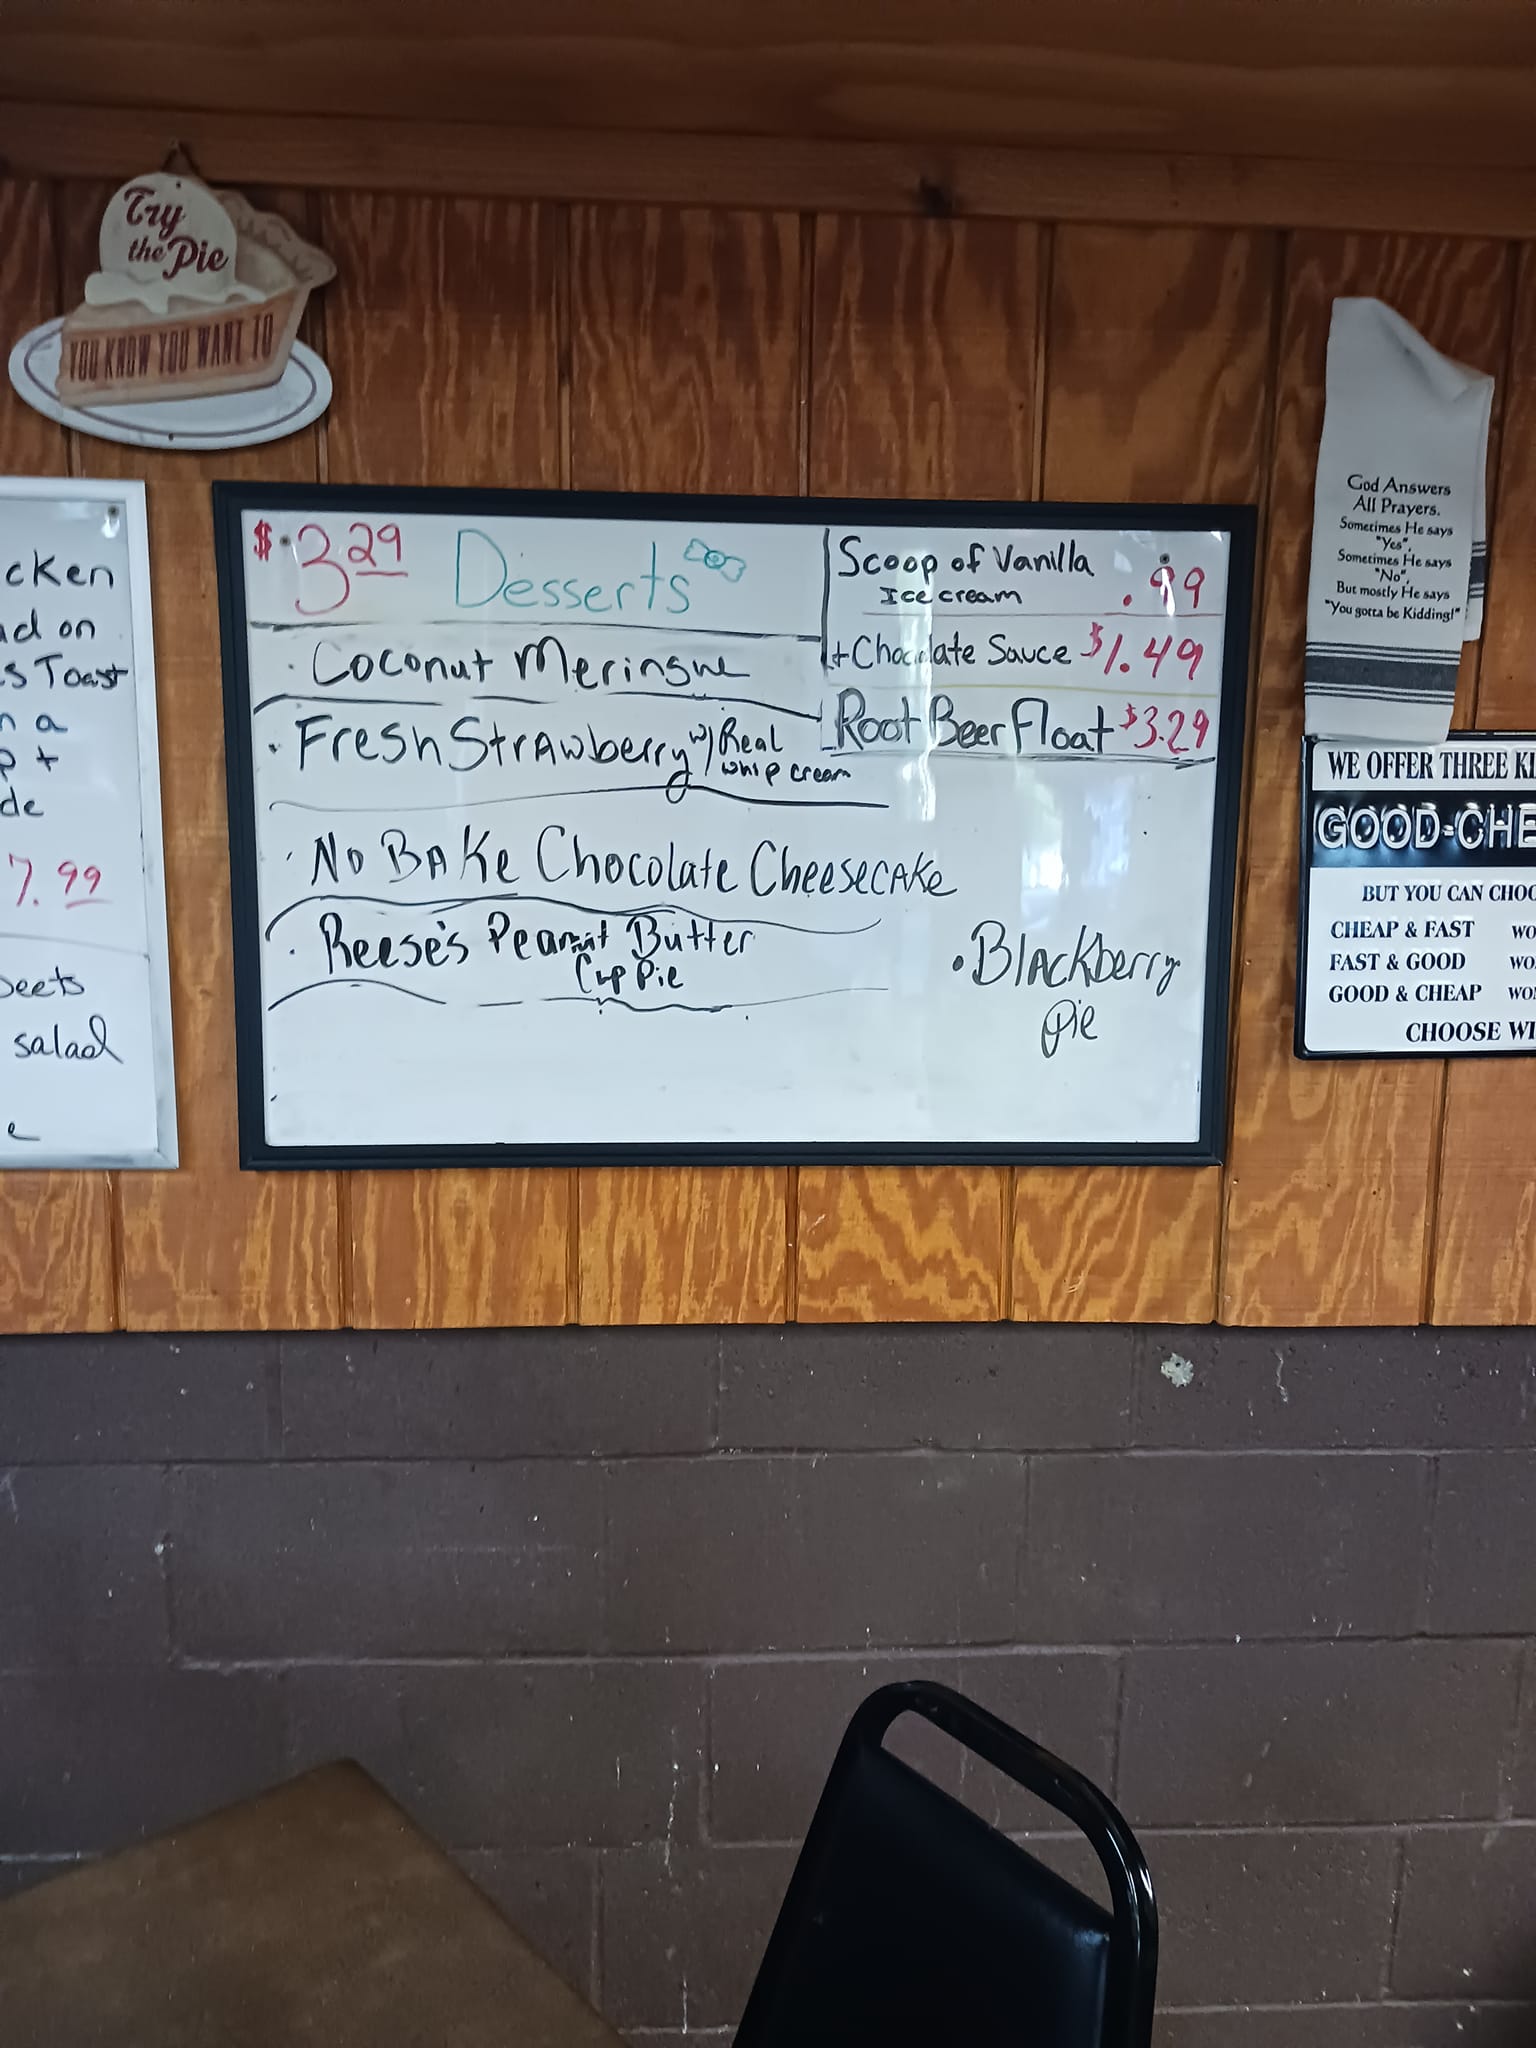 Try
the Pie
YOU KNOW YOU WANT TO
cken
on
s Toast
n a
p +
de
7.99
beets
salad
e
$3.29 Desserts
• Coconut Meringue
• Fresh Strawberry w/ Real
whip cream
• No BAKe Chocolate CheesecAKe
• Reese's Peanut Butter
Cup Pie
Scoop of Vanilla
Ice cream .99
+ Chocolate Sauce $1.49
Root Beer Float $3.29
• Blackberry
Pie
God Answers
All Prayers.
Sometimes He says
"Yes",
Sometimes He says
"No",
But mostly He says
"You gotta be Kidding!"
WE OFFER THREE KI
GOOD-CHE
BUT YOU CAN CHOO
CHEAP & FAST WO
FAST & GOOD WO
GOOD & CHEAP WO
CHOOSE WI